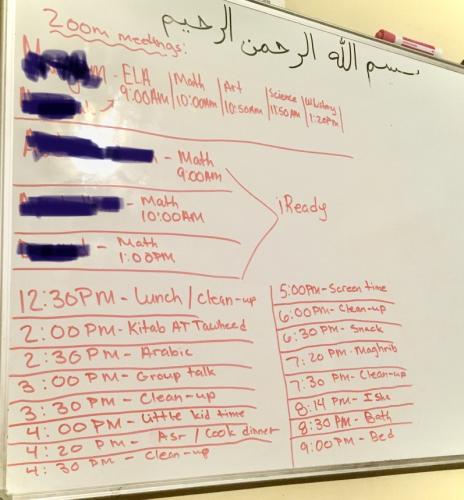 Zoom meetings:
بسم الله الرحمن الرحيم
- ELA 9:00AM | Math 10:00AM | Art 10:50AM | Science 11:50AM | W History 1:20PM
- Math
9:00AM
- Math
10:00AM
iReady
- Math
1:00PM
12:30PM - Lunch / clean-up
2:00PM - Kitab AT Tawheed
2:30PM - Arabic
3:00 PM - Group talk
3:30 PM - Clean-up
4:00PM - Little kid time
4:20 PM - Asr / Cook dinner
4:30 PM - Clean-up
5:00PM - Screen time
6:00PM - Clean-up
6:30 PM - Snack
7:20 PM - Maghrib
7:30 PM - Clean-up
8:14 PM - Isha
8:30 PM - Bath
9:00PM - Bed